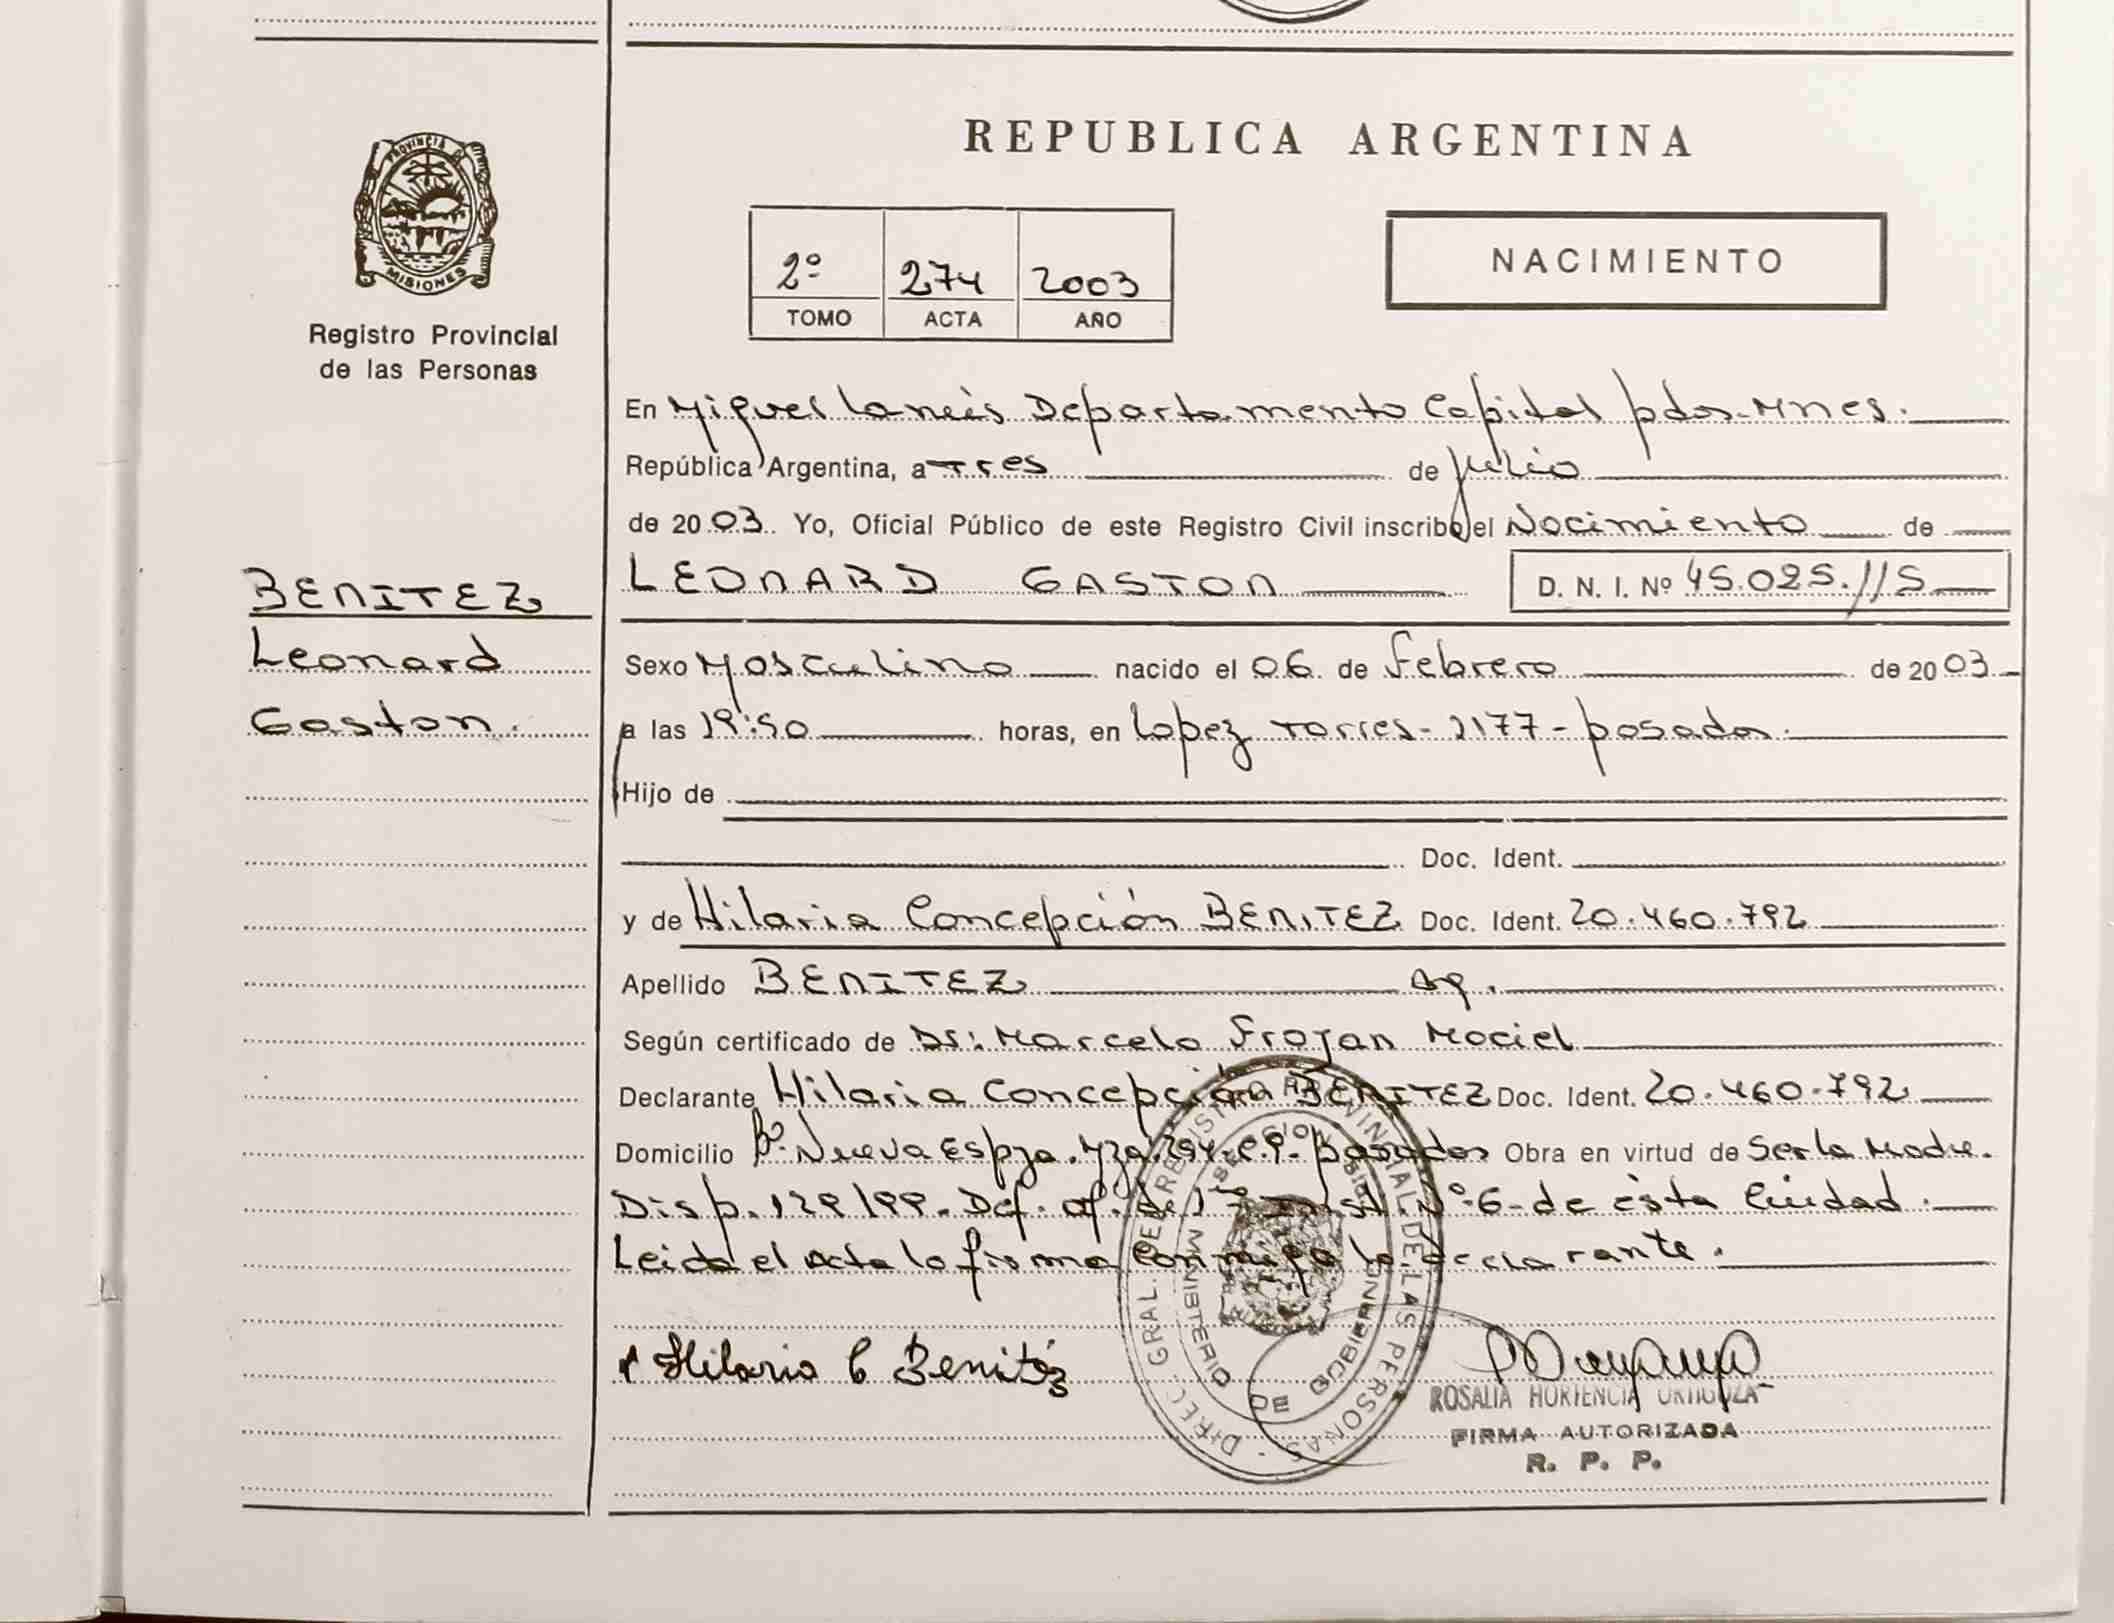 PROVINCIA DE MISIONES
Registro Provincial
de las Personas
BENITEZ
Leonard
Gaston.
REPUBLICA ARGENTINA
2º 274 2003
TOMO ACTA AÑO
NACIMIENTO
En Miguel Lanús Departamento Capital pdas-Mnes.
República Argentina, a Tres de julio
de 2003 Yo, Oficial Público de este Registro Civil inscribo el Nacimiento de
LEONARD GASTON D. N. I. Nº 45.025.115
Sexo Masculino nacido el 06 de Febrero de 2003
a las 19:50 horas, en Lopez Torres-1177-posadas.
Hijo de
Doc. Ident.
y de Hilaria Concepción BENITEZ Doc. Ident. 20.460.792
Apellido BENITEZ
Según certificado de Dr: Marcelo Maciel
Declarante Hilaria Concepción BENITEZ Doc. Ident. 20.460.792
Domicilio Bº Nueva Espza. Mza. 294-C.9-posadas Obra en virtud de Ser la Madre.
Disp. 129/99. Def. of. de 1ra Inst. Nº-6-de ésta Ciudad.
Leida el acta la firma conmigo la declarante.
Hilaria C Benitéz
DIREC. GRAL. DEL REGISTRO PROVINCIAL DE LAS PERSONAS
MINISTERIO DE GOBIERNO
ROSALIA HORTENCIA
FIRMA AUTORIZADA
R. P. P.